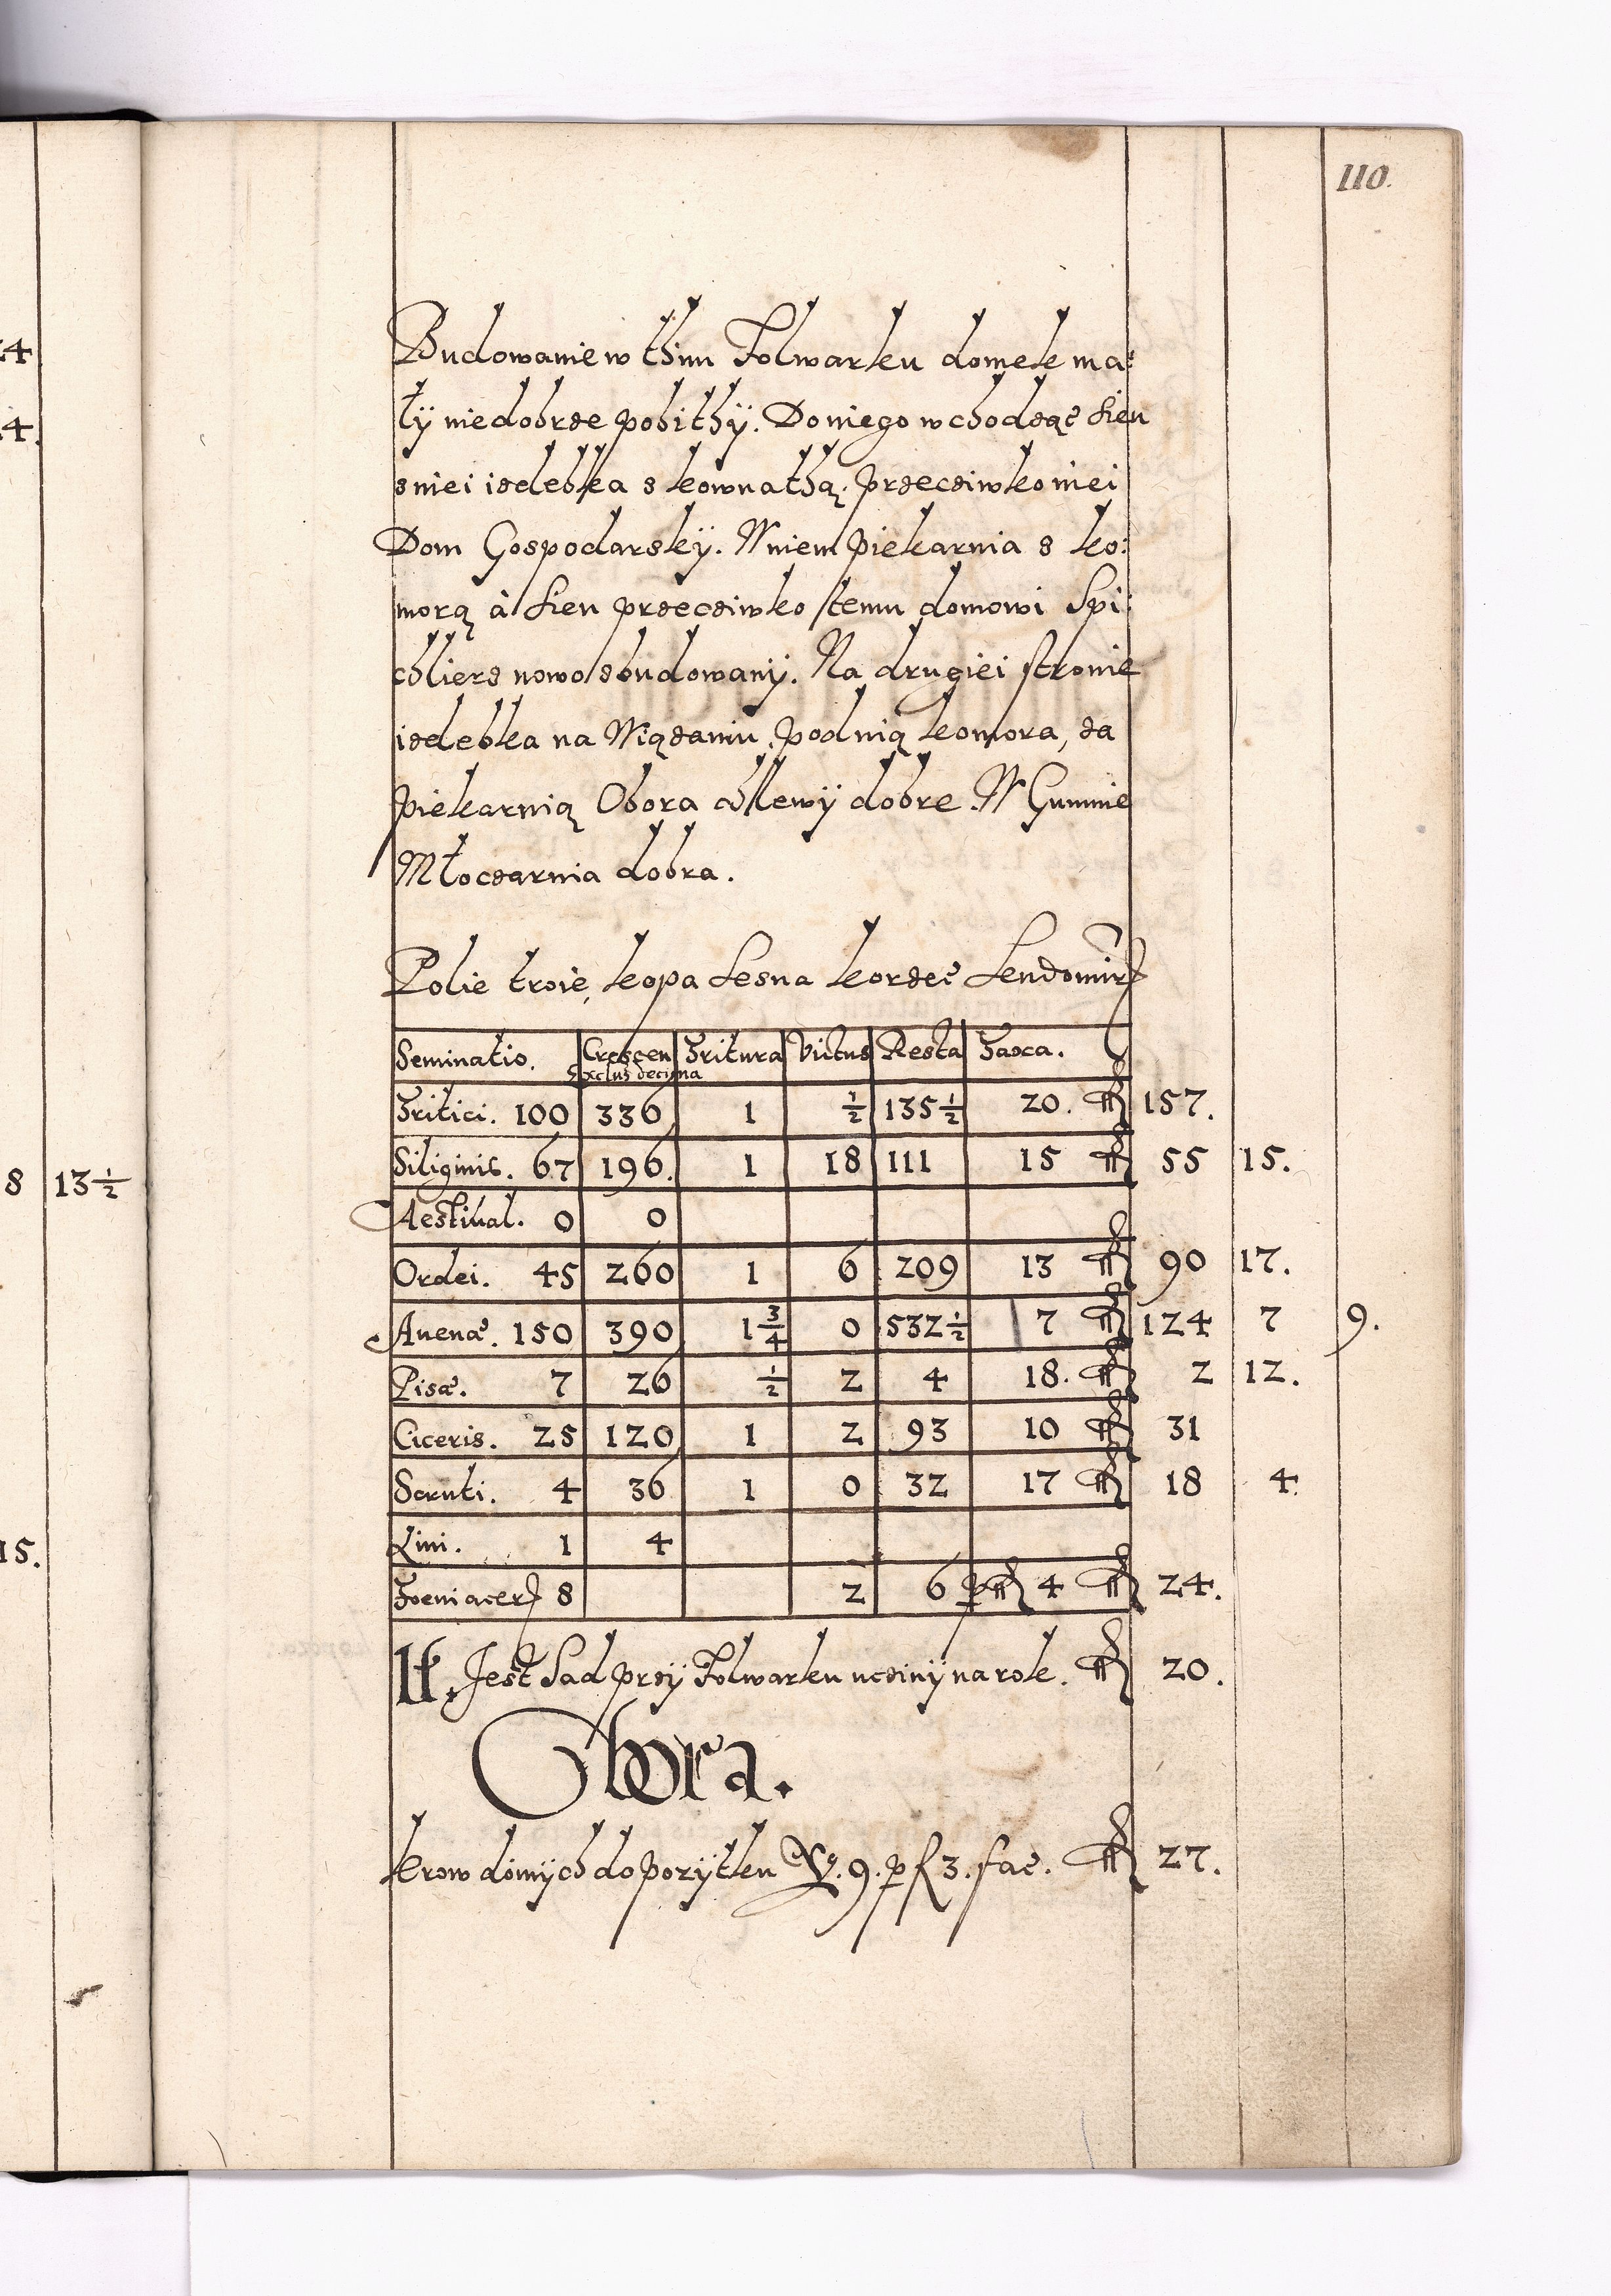 110.
Budowanie w thim Folwarku domek ma:
ły niedobrze pobithÿ. Do niego wchodząc Sień
z niei izdebka z kownathą. przeciwko niei
Dom Gospodarskÿ. W niem piekarnia z ko:
morą à Sien przeciwko temu domowi Spi:
chlierz nowo zbudowanÿ. Na drugiei stronie
izdebka na Wiązaniu, pod nią komora, za
piekarnią Obora chlewÿ dobre. W Gumnie
Młoczarnia dobra.
Polie troie, kopa Lesna korzec Sendomir
Seminatio. Crescen Tritura Victus Resta Taxa.
Exclus decima
Tritici. 100 336 1 ½ 135½ 20. 157.
Siliginis. 67 196. 1 18 111 15 55 15.
Aestival. 0 0
Ordei. 45 260 1 6 209 13 90 17.
Auenæ. 150 390 1¾ 0 532½ 7 124 7 9.
Pisæ. 7 26 ½ 2 4 18. 2 12.
Ciceris. 25 120 1 2 93 10 31
Scruti. 4 36 1 0 32 17 18 4.
Lini. 1 4
Foeni acer 8 2 6 p 4 24.
It. Jest Sad przÿ Folwarku uczinÿ na rok. 20.
Obora.
krow doinÿch do pozÿtku No. 9. p f 3. fac. 27.
24
24.
8 13½
15.